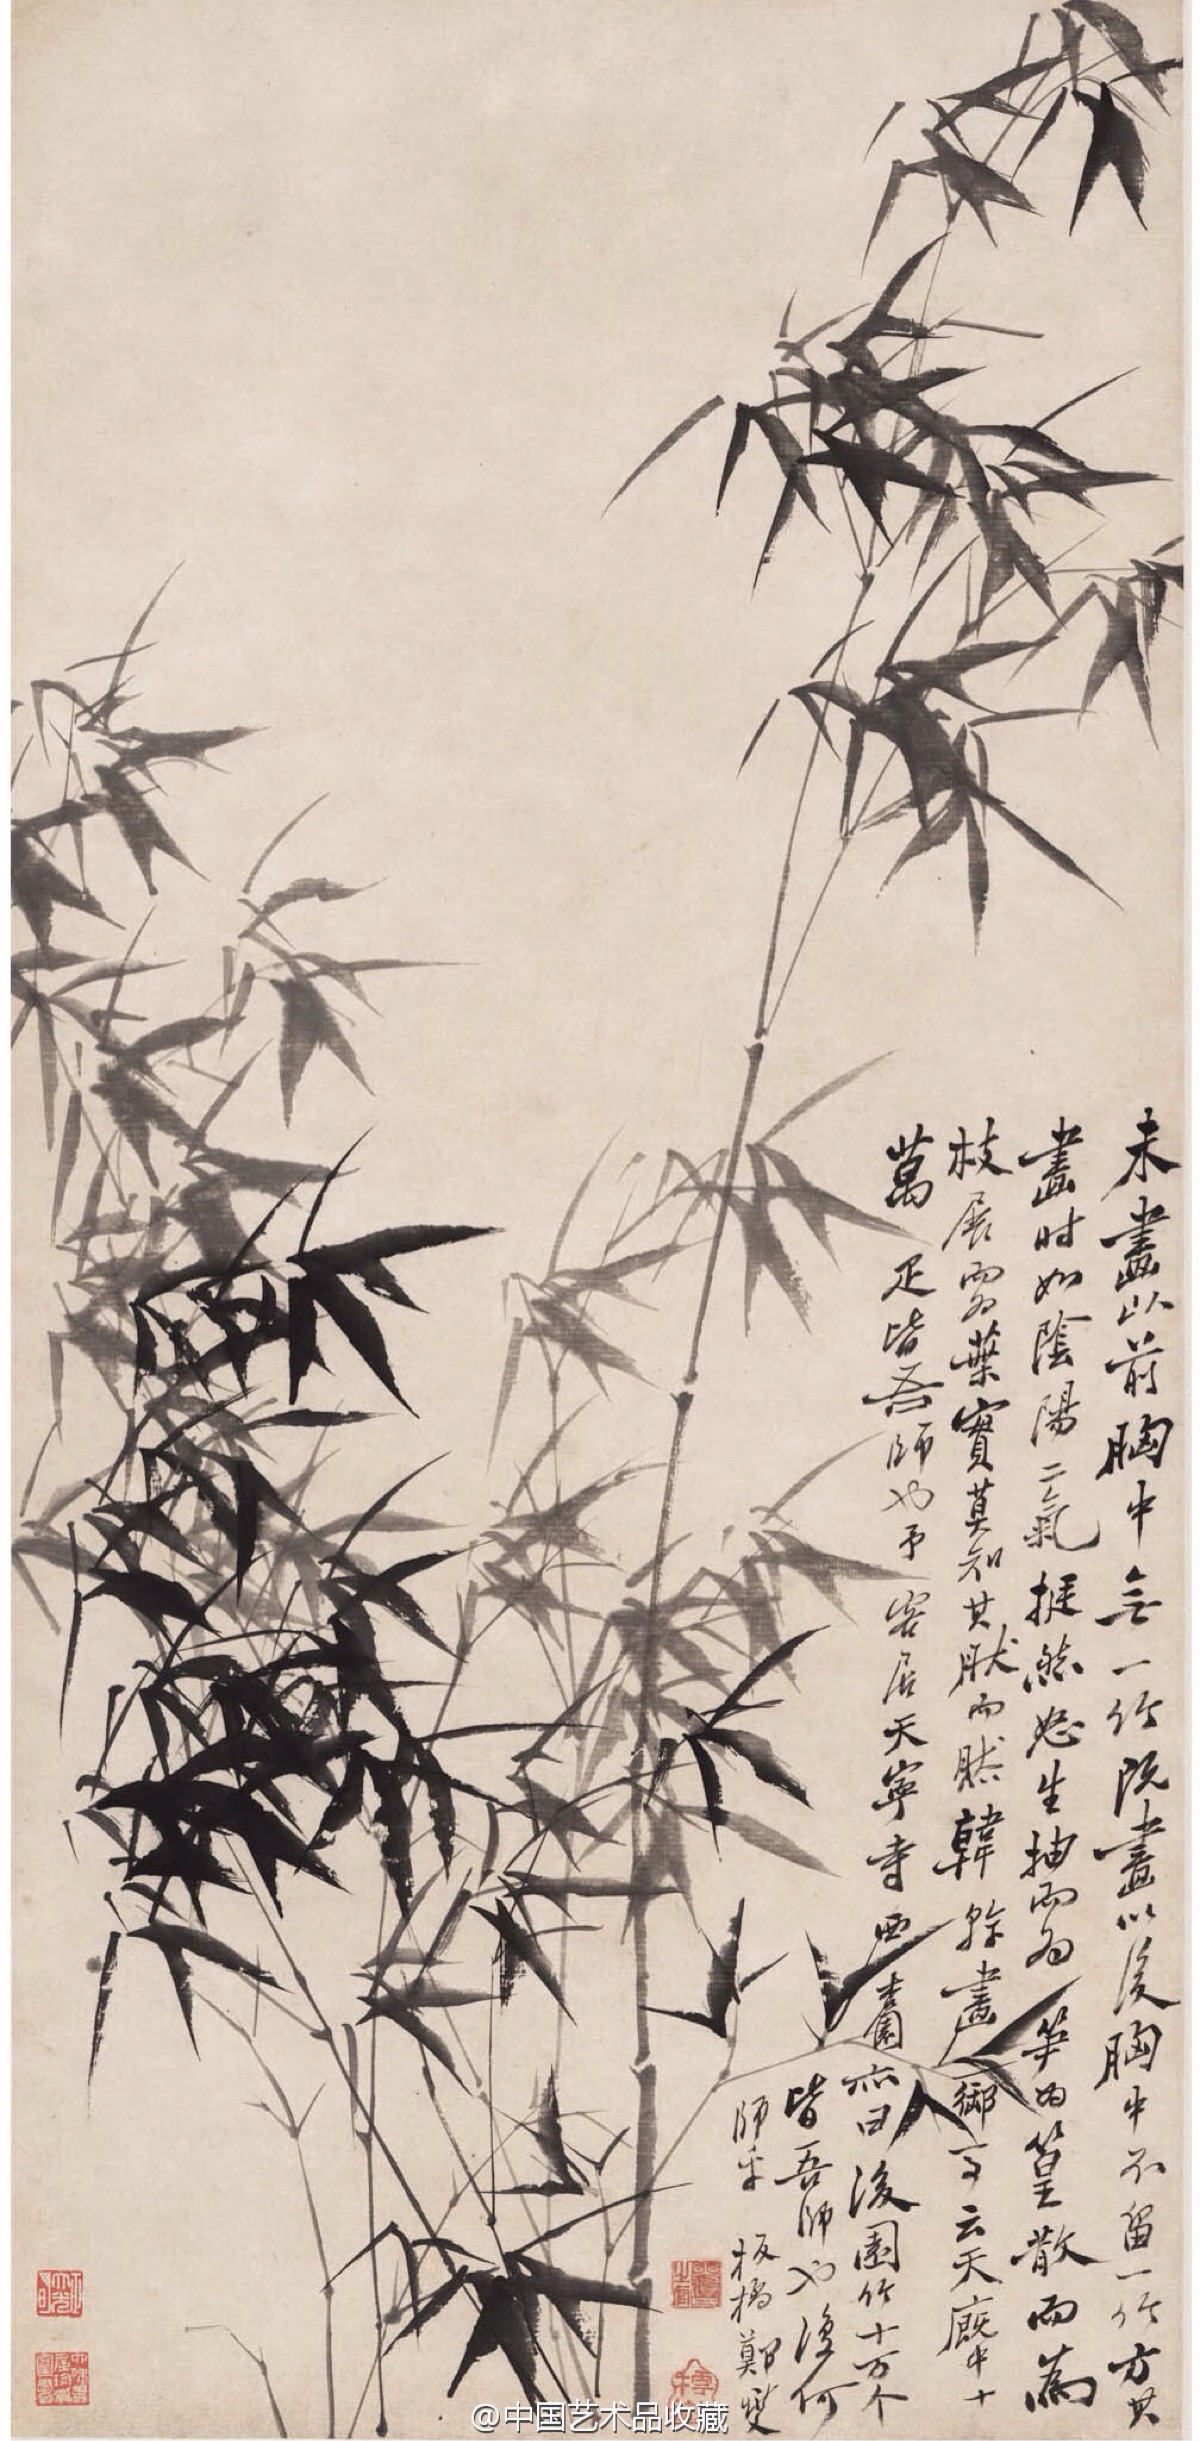 未畫以前胸中無一竹既畫以後胸中不留一竹方其
畫時如陰陽二氣挺然怒生抽而為笋為篁散而為
枝展而為葉實莫知其然而然韓幹畫御馬云天廐中十
萬疋皆吾師也予客居天寧寺西杏園亦曰後園竹十万个
皆吾師也復何
師乎 板橋鄭燮
@中国艺术品收藏